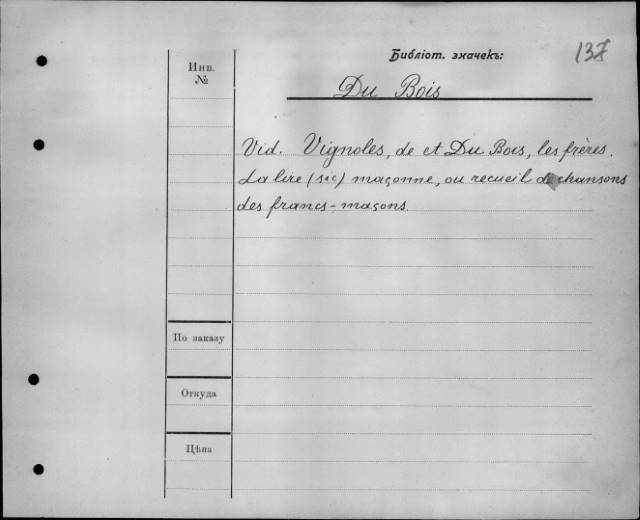 Библіот. значекъ:
Инв.
№
Du Bois
Vid. Vignoles, de et Du Bois, les frères.
La lire (sic) maçonne, ou recueil de chansons
des francs-maçons.
По заказу
Откуда
Цѣна